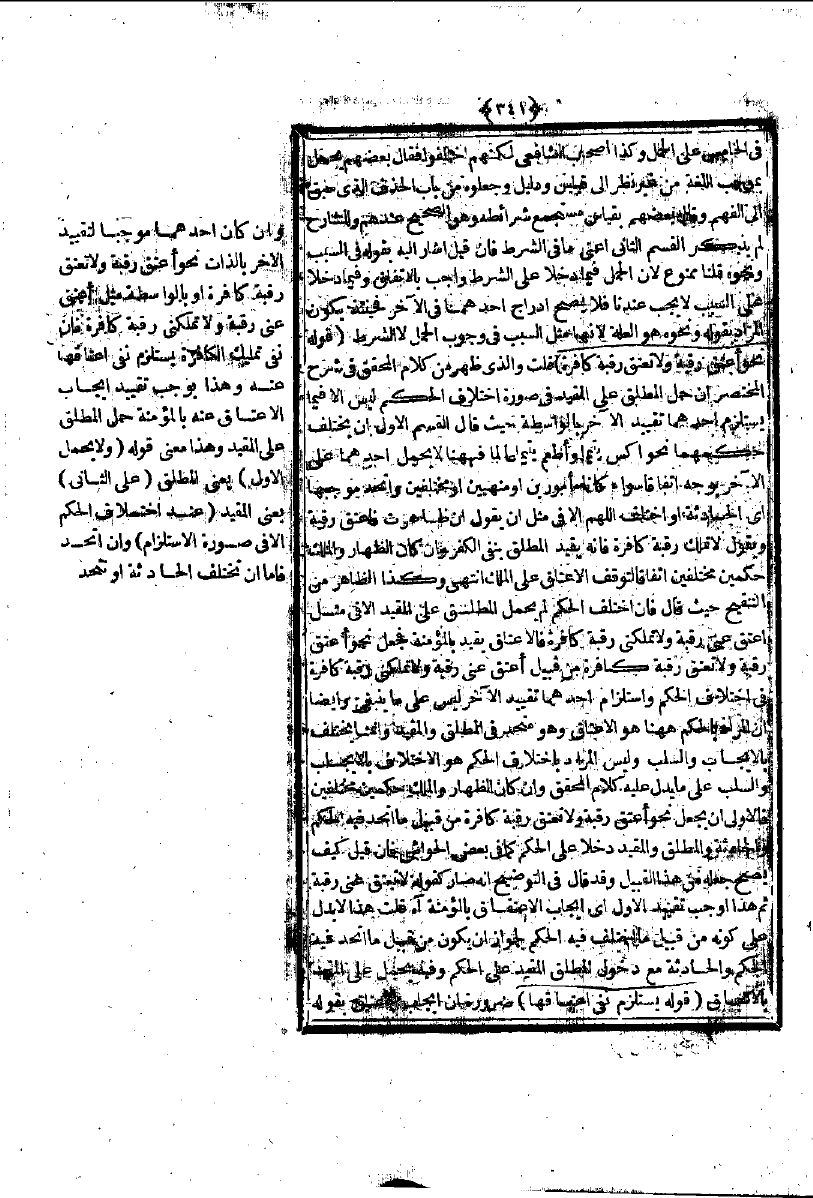 ﴿٣٤١﴾
فى الخامس على الحمل وكذا اصحاب الشافعى لكنهم اختلفوا فقال بعضهم يحمل
بموجب اللغة من غير نظر الى قياس ودليل وجعلوه من باب الحذف الذى سبق
الى الفهم وقال بعضهم بقياس مستجمع شرائطه وهو الصحيح عندهم والشارح
لم يذكر القسم الثانى اعنى ما فى الشرط فان قيل اشار اليه بقوله فى السبب
ونحوه قلنا ممنوع لان الحمل فيما دخلا على الشرط واجب بالاتفاق وفيما دخلا
على السبب لا يجب عندنا فلا يصح ادراج احدهما فى الآخر فحينئذ يكون
المراد بقوله ونحوه هو العلة لانها مثل السبب فى وجوب الحمل لا الشرط (قوله
نحو أعتق رقبة ولا تعتق رقبة كافرة) قلت والذى ظهر من كلام المحقق فى شرح
المختصر ان حمل المطلق على المقيد فى صورة اختلاف الحكم ليس الا فيما
يستلزم احدهما تقييد الآخر بالواسطة حيث قال القسم الاول ان يختلف
حكمهما نحو اكس يتيما وأطعم يتيما عالما فههنا لا يحمل احدهما على
الآخر بوجه اتفاقا سواء كانا مأمورين او منهيين او مختلفين واتحد موجبهما
اى الحادثة او اختلف اللهم الا فى مثل ان يقول ان ظاهرت فاعتق رقبة
ويقول لا تملك رقبة كافرة فانه يقيد المطلق بنفى الكفر وان كان الظهار والملك
حكمين مختلفين اتفاقا لتوقف الاعتاق على الملك انتهى وكذا الظاهر من
التنقيح حيث قال فان اختلف الحكم لم يحمل المطلق على المقيد الا فى مثل
اعتق عنى رقبة ولا تملكنى رقبة كافرة فالاعتاق يقيد بالمؤمنة فجعل نحو أعتق
رقبة ولا تعتق رقبة كافرة من قبيل أعتق عنى رقبة ولا تملكنى رقبة كافرة
فى اختلاف الحكم واستلزام احدهما تقييد الآخر ليس على ما ينبغى وايضا
ان المراد بالحكم ههنا هو الاعتاق وهو متحد فى المطلق والمقيد وانما يختلف
بالايجاب والسلب وليس المراد باختلاف الحكم هو الاختلاف بالايجاب
والسلب على ما يدل عليه كلام المحقق وان كان الظهار والملك حكمين مختلفين
فالاولى ان يجعل نحو أعتق رقبة ولا تعتق رقبة كافرة من قبيل ما اتحد فيه الحكم
والحادثة والمطلق والمقيد دخلا على الحكم كما فى بعض الحواشى فان قيل كيف
يصح جعله من هذا القبيل وقد قال فى التوضيح انه صار كقوله لا تعتق عنى رقبة
ثم هذا اوجب تقييد الاول اى ايجاب الاعتاق بالمؤمنة آه قلت هذا لا يدل
على كونه من قبيل ما اختلف فيه الحكم لجواز ان يكون من قبيل ما اتحد فيه
الحكم والحادثة مع دخول المطلق المقيد على الحكم وفيه يحمل على المقيد
بالاتفاق (قوله يستلزم نفى اعتاقها) ضرورة ان ايجاب بقوله
وان كان احدهما موجبا لتقييد
الاخر بالذات نحو أعتق رقبة ولا تعتق
رقبة كافرة او بالواسطة مثل أعتق
عنى رقبة ولا تملكنى رقبة كافرة فان
نفى تمليك الكافرة يستلزم نفى اعتاقها
عنه وهذا يوجب تقييد ايجاب
الاعتاق عنه بالمؤمنة حمل المطلق
على المقيد وهذا معنى قوله (ولا يحمل
الاول) يعنى المطلق (على الثانى)
يعنى المقيد (عند اختلاف الحكم
الا فى صورة الاستلزام) وان اتحد
فاما ان تختلف الحادثة او تتحد